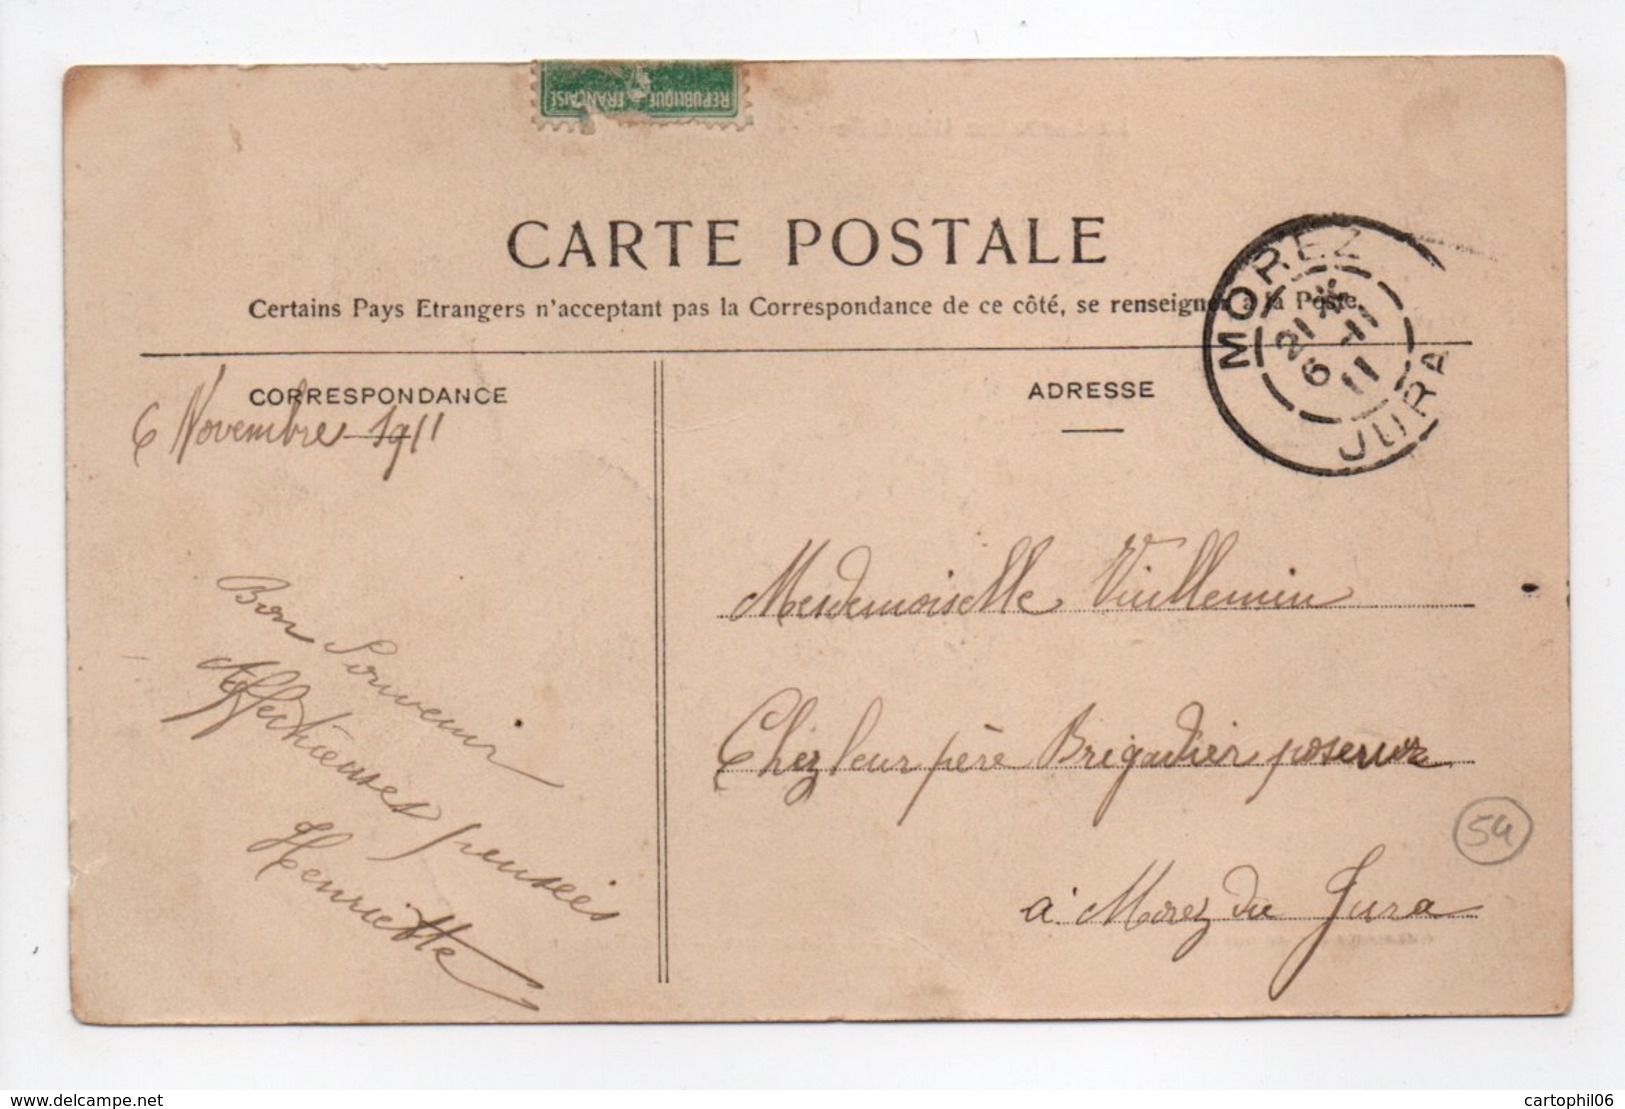 REPUBLIQUE FRANÇAISE
CARTE POSTALE
Certains Pays Etrangers n'acceptant pas la Correspondance de ce côté, se renseigner à la Poste.
CORRESPONDANCE
6 Novembre 1911
Bon Souvenir
Affectieuses pensées
Henriette
ADRESSE
MOREZ
21 *
6 -11
11
JURA
Mesdemoiselle Vuillemin
Chez leur père Brigadier poseur
à Morez du Jura
54
http://www.delcampe.net
cartophil06